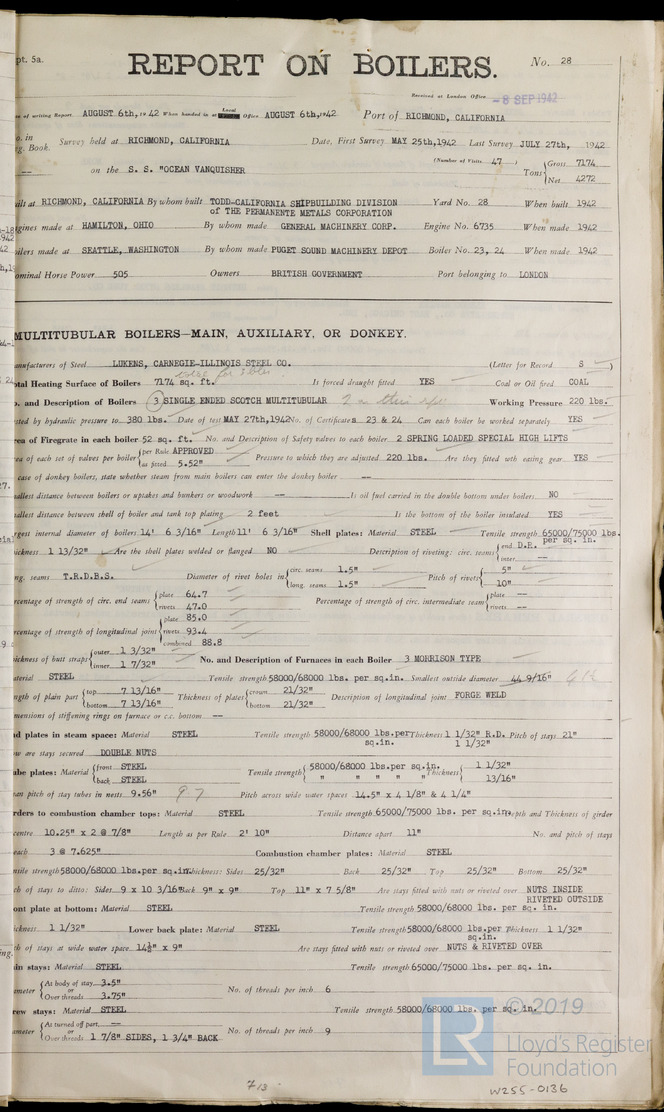 pt. 5a.
REPORT ON BOILERS.
No. 28
Received at London Office - 8 SEP 1942
of writing Report AUGUST 6th, 19 42 When handed in at Local Office AUGUST 6th, 1942 Port of RICHMOND, CALIFORNIA
in
g. Book. Survey held at RICHMOND, CALIFORNIA Date, First Survey MAY 25th, 1942 Last Survey JULY 27th, 1942
(Number of Visits 47 )
-- on the S. S. "OCEAN VANQUISHER Tons { Gross 7174
Net 4272
ilt at RICHMOND, CALIFORNIA By whom built TODD-CALIFORNIA SHIPBUILDING DIVISION Yard No. 28 When built 1942
of THE PERMANENTE METALS CORPORATION
gines made at HAMILTON, OHIO By whom made GENERAL MACHINERY CORP. Engine No. 6735 When made 1942
oilers made at SEATTLE, WASHINGTON By whom made PUGET SOUND MACHINERY DEPOT Boiler No. 23, 24 When made 1942
ominal Horse Power 505 Owners BRITISH GOVERNMENT Port belonging to LONDON
MULTITUBULAR BOILERS—MAIN, AUXILIARY, OR DONKEY.
anufacturers of Steel LUKENS, CARNEGIE-ILLINOIS STEEL CO. (Letter for Record S )
otal Heating Surface of Boilers 7174 sq. ft. Is forced draught fitted YES Coal or Oil fired COAL
. and Description of Boilers 3 SINGLE ENDED SCOTCH MULTITUBULAR Working Pressure 220 lbs.
sted by hydraulic pressure to 380 lbs. Date of test MAY 27th, 1942 No. of Certificates 23 & 24 Can each boiler be worked separately YES
rea of Firegrate in each boiler 52 sq. ft. No. and Description of Safety valves to each boiler 2 SPRING LOADED SPECIAL HIGH LIFTS
ea of each set of valves per boiler { per Rule APPROVED
as fitted 5.52" Pressure to which they are adjusted 220 lbs. Are they fitted with easing gear YES
case of donkey boilers, state whether steam from main boilers can enter the donkey boiler --
allest distance between boilers or uptakes and bunkers or woodwork -- Is oil fuel carried in the double bottom under boilers NO
allest distance between shell of boiler and tank top plating 2 feet Is the bottom of the boiler insulated YES
rgest internal diameter of boilers 14' 6 3/16" Length 11' 6 3/16" Shell plates: Material STEEL Tensile strength 65000/75000 lbs. per sq. in.
ickness 1 13/32" Are the shell plates welded or flanged NO Description of riveting: circ. seams { end D.R.
inter --
ng. seams T.R.D.B.S. Diameter of rivet holes in { circ. seams 1.5"
long. seams 1.5" Pitch of rivets { 5"
10"
rcentage of strength of circ. end seams { plate 64.7
rivets 47.0 Percentage of strength of circ. intermediate seam { plate --
rivets --
rcentage of strength of longitudinal joint { plate 85.0
rivets 93.4
combined 88.8
ickness of butt straps { outer 1 3/32"
inner 1 7/32" No. and Description of Furnaces in each Boiler 3 MORRISON TYPE
aterial STEEL Tensile strength 58000/68000 lbs. per sq.in. Smallest outside diameter 44 9/16"
ngth of plain part { top 7 13/16"
bottom 7 13/16" Thickness of plates { crown 21/32"
bottom 21/32" Description of longitudinal joint FORGE WELD
mensions of stiffening rings on furnace or c.c. bottom --
d plates in steam space: Material STEEL Tensile strength 58000/68000 lbs. per sq.in. Thickness 1 1/32" R.D. Pitch of stays 21"
1 1/32"
w are stays secured DOUBLE NUTS
ube plates: Material { front STEEL
back STEEL Tensile strength { 58000/68000 lbs. per sq.in.
" " " " Thickness { 1 1/32"
13/16"
an pitch of stay tubes in nests 9.56" 9 7 Pitch across wide water spaces 14.5" x 4 1/8" & 4 1/4"
rders to combustion chamber tops: Material STEEL Tensile strength 65000/75000 lbs. per sq.in. Depth and Thickness of girder
centre 10.25" x 2 @ 7/8" Length as per Rule 2' 10" Distance apart 11" No. and pitch of stays
each 3 @ 7.625" Combustion chamber plates: Material STEEL
nsile strength 58000/68000 lbs.per sq.in. Thickness: Sides 25/32" Back 25/32" Top 25/32" Bottom 25/32"
ch of stays to ditto: Sides 9 x 10 3/16" Back 9" x 9" Top 11" x 7 5/8" Are stays fitted with nuts or riveted over NUTS INSIDE
RIVETED OUTSIDE
ont plate at bottom: Material STEEL Tensile strength 58000/68000 lbs. per sq. in.
ickness 1 1/32" Lower back plate: Material STEEL Tensile strength 58000/68000 lbs. per sq.in. Thickness 1 1/32"
ch of stays at wide water space 14½" x 9" Are stays fitted with nuts or riveted over NUTS & RIVETED OVER
in stays: Material STEEL Tensile strength 65000/75000 lbs. per sq. in.
ameter { At body of stay 3.5"
or
Over threads 3.75" No. of threads per inch 6
rew stays: Material STEEL Tensile strength 58000/68000 lbs. per sq.in.
ameter { At turned off part --
or
Over threads 1 7/8" SIDES, 1 3/4" BACK No. of threads per inch 9
© 2019
LR
Lloyd's Register
Foundation
7 13
W255-0136